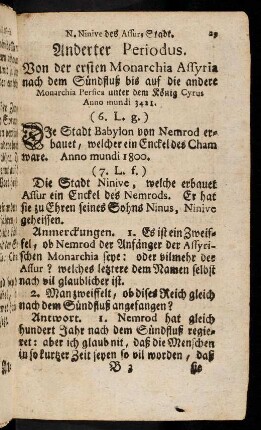 N. Ninive des Assur, Stadt. 21
Anderter Periodus.
Von der ersten Monarchia Assyria
nach dem Sündfluß bis auf die andere
Monarchia Persica unter dem König Cyrus
Anno mundi 3421.
(6. L. g.)
DIe Stadt Babylon von Nemrod er-
bauet, welcher ein Enckel des Cham
ware. Anno mundi 1800.
(7. L. f.)
Die Stadt Ninive, welche erbauet
Assur ein Enckel des Nemrods. Er hat
sie zu Ehren seines Sohns Ninus, Ninive
geheissen.
Anmerckungen. 1. Es ist ein Zweif-
fel, ob Nemrod der Anfänger der Assyri-
schen Monarchia seye: oder vilmehr des
Assur? welches letztere dem Namen selbst
nach vil glaublicher ist.
2. Man zweiffelt, ob dises Reich gleich
nach dem Sündfluß angefangen?
Antwort. 1. Nemrod hat gleich
hundert Jahr nach dem Sündfluß regie-
ret: aber ich glaub nit, daß die Menschen
in so kurtzer Zeit seyen so vil worden, daß
B 3 sie